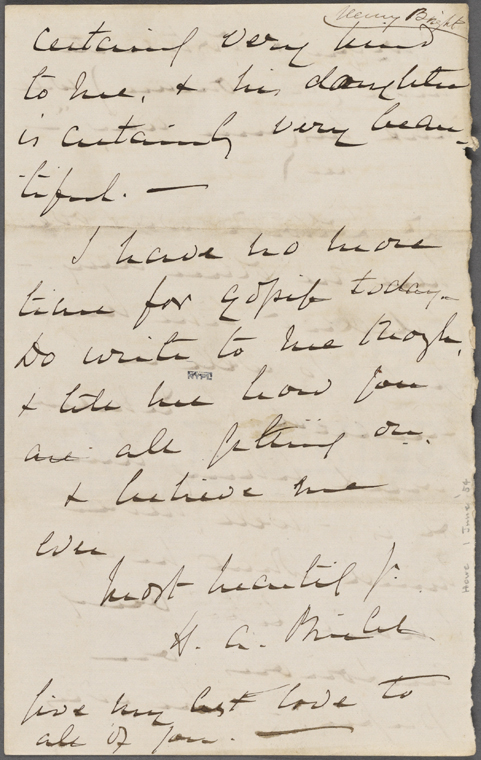 Henry Bright
certainly very kind
to me, & his daughter
is certainly very beau-
tiful. —
I have no more
time for gossip today.
Do write to me though,
& tell me how you
are all getting on.
& believe me
ever
most heartily yr.
H. A. Bright
Give my best love to
all of you. —
Howe 1 June '54